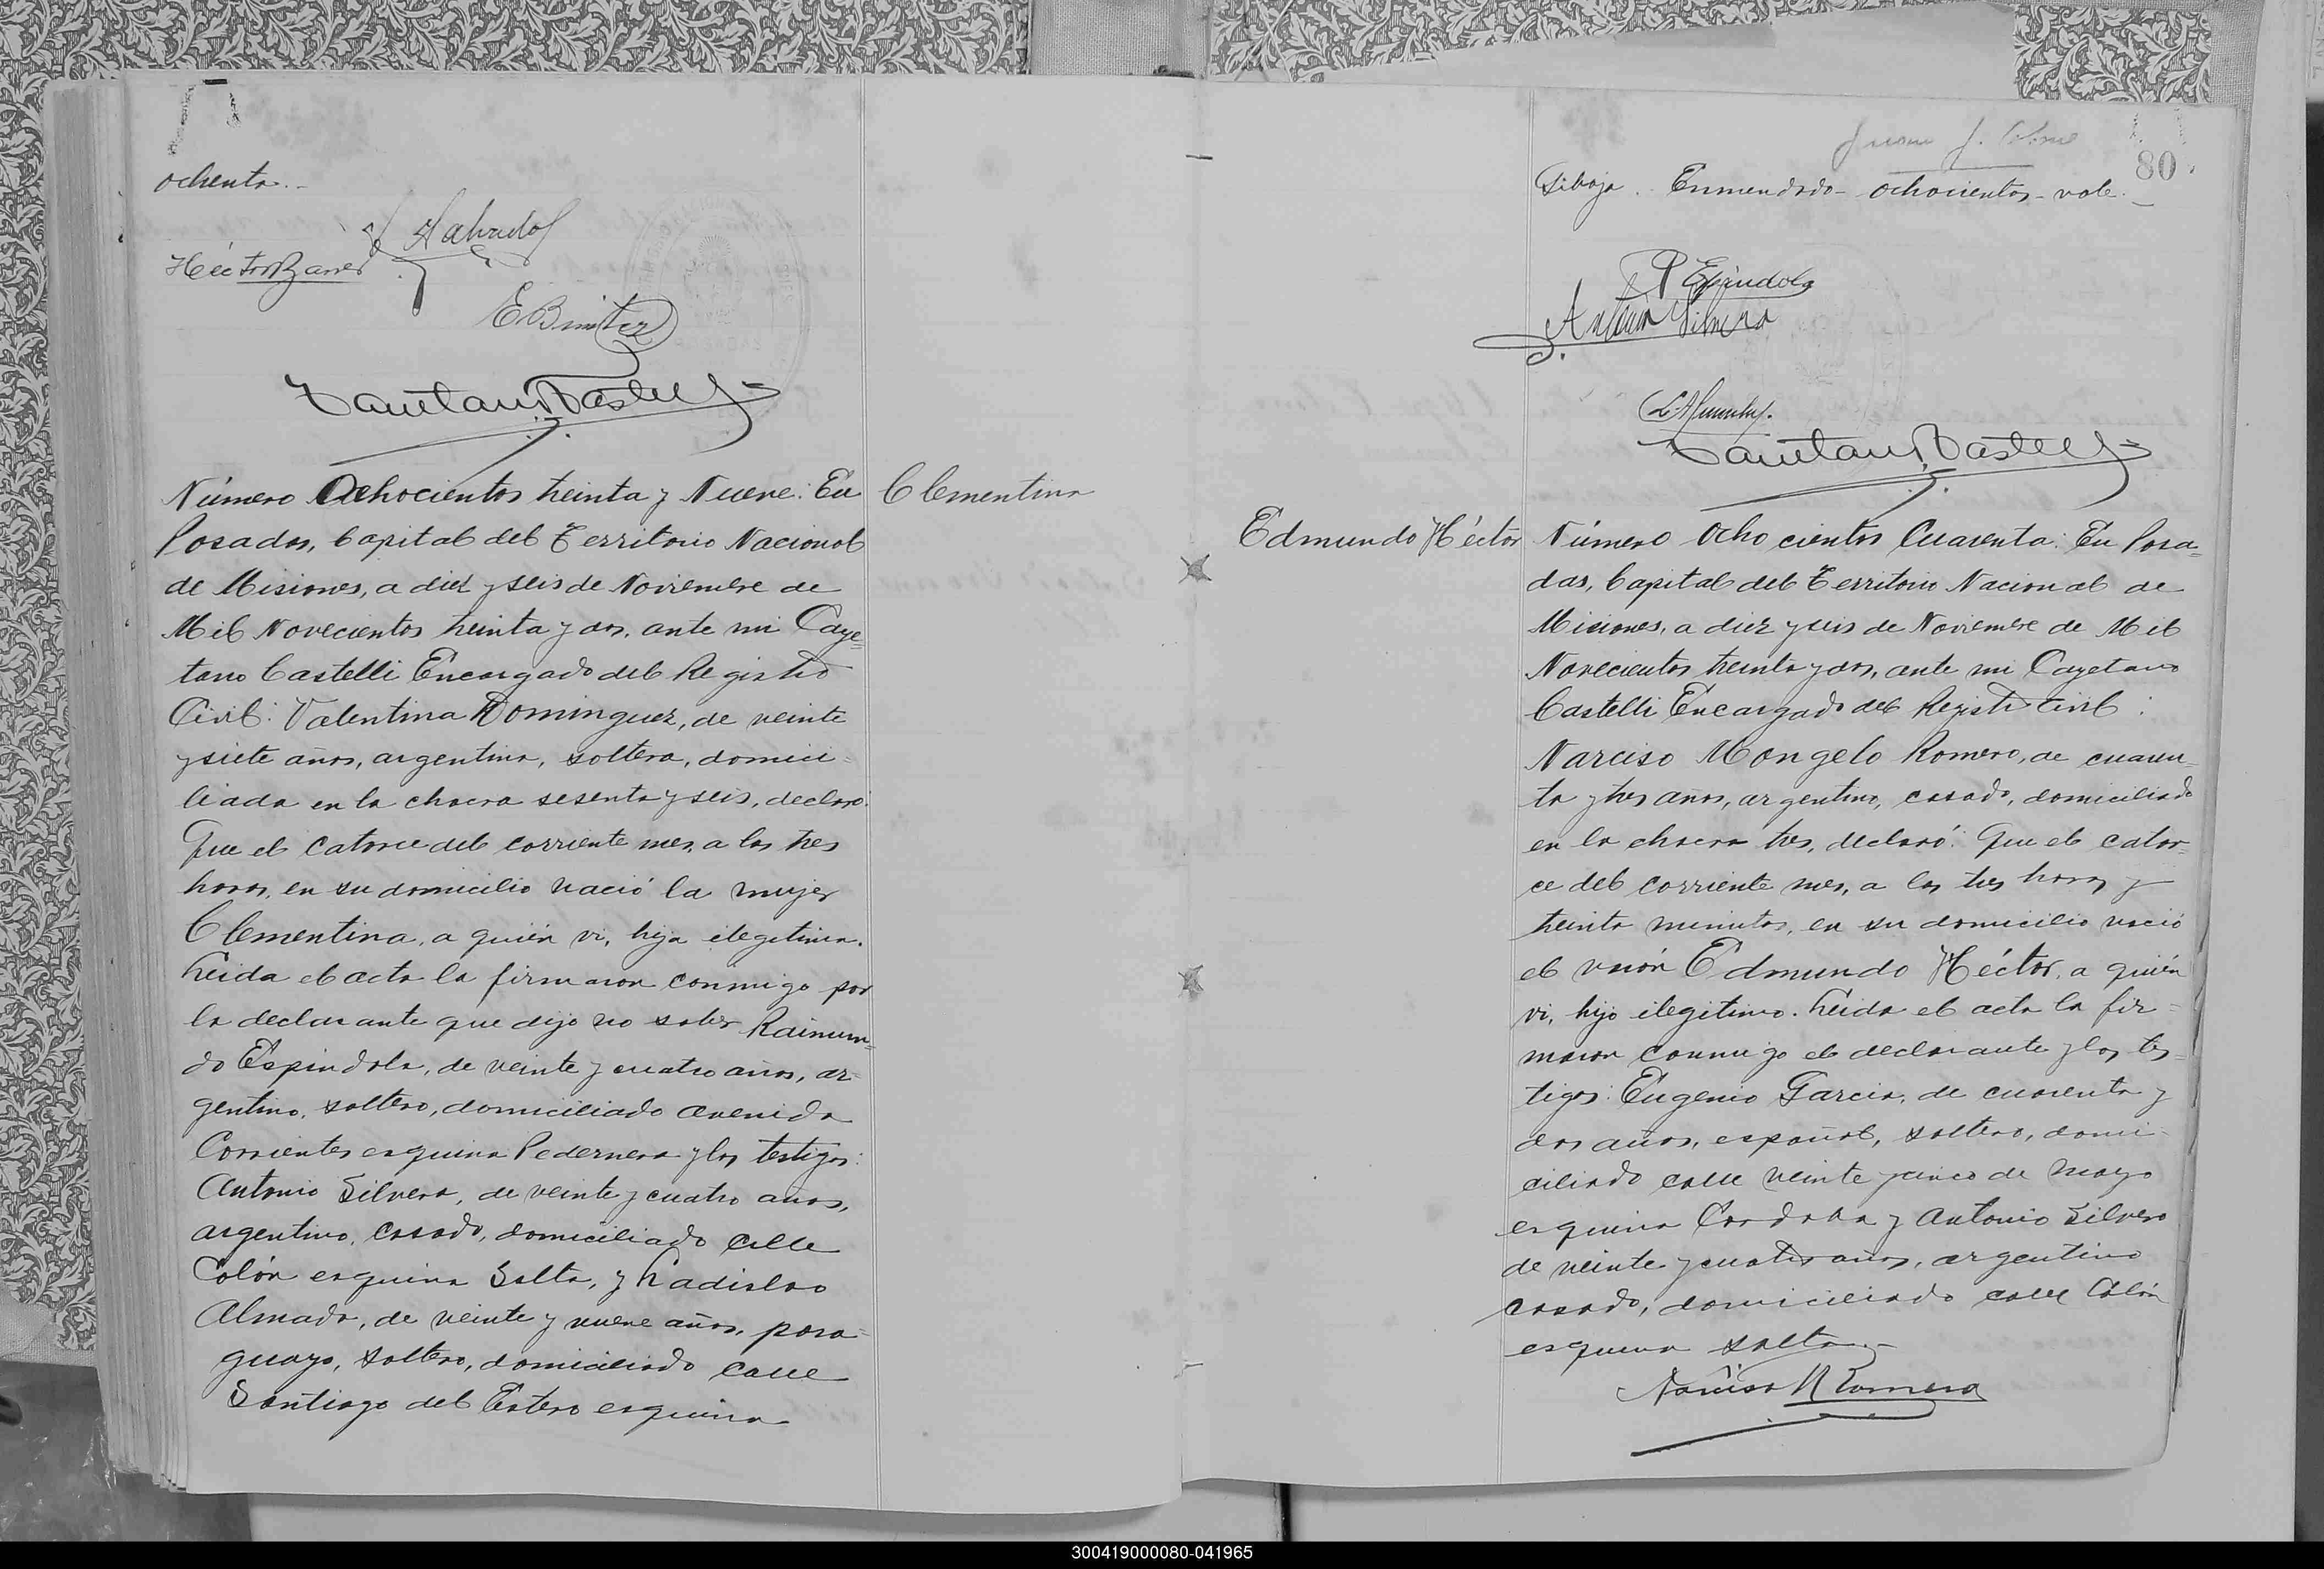 ochenta.-
Salvador
Héctor Barre
E Benitez
Cayetano Castelli
Número Ochocientos treinta y Nueve: En
Posadas, Capital del Territorio Nacional
de Misiones, a diez y seis de Noviembre de
Mil Novecientos treinta y dos, ante mi Caye=
tano Castelli Encargado del Registro
Civil: Valentina Dominguez, de veinte
y siete años, argentina, soltera, domici=
liada en la chacra sesenta y seis, declaro:
Que el catorce del corriente mes, a las tres
horas, en su domicilio nació la mujer
Clementina, a quién vi, hija ilegitima.
Leida el acta la firmaron conmigo por
la declarante que dijo no saber Raimun=
do Espindola, de veinte y cuatro años, ar-
gentino, soltero, domiciliado avenida
Corrientes esquina Pedernera y los testigos:
Antonio Silvera, de veinte y cuatro años,
argentino, casado, domiciliado calle
Colón esquina Salta, y Ladislao
Almada, de veinte y nueve años, para=
guayo, soltero, domiciliado calle
Santiago del Estero esquina
Clementina
80.
Libaja. Enmendado - ochocientos - vale.-
R Espindola
Antonio Silvera
Cayetano Castelli
Edmundo Héctor
Número Ochocientos Cuarenta: En Posa=
das, Capital del Territorio Nacional de
Misiones, a diez y seis de Noviembre de Mil
Novecientos treinta y dos, ante mi Cayetano
Castelli Encargado del Registro Civil:
Narciso Mongelo Romero, de cuaren-
ta y tres años, argentino, casado, domiciliado
en la chacra tres, declaró: Que el cator-
ce del corriente mes, a las tres horas y
treinta minutos, en su domicilio nació
el varón Edmundo Héctor, a quién
vi, hijo ilegitimo. Leida el acta la fir=
maron conmigo el declarante y los tes=
tigos: Eugenio Garcia, de cuarenta y
dos años, español, soltero, domi-
ciliado calle veinte y cinco de Mayo
esquina Cordoba y Antonio Silvero
de veinte y cuatro años, argentino
casado, domiciliado calle Colón
esquina Salta.-
Narciso M Romero
300419000080-041965